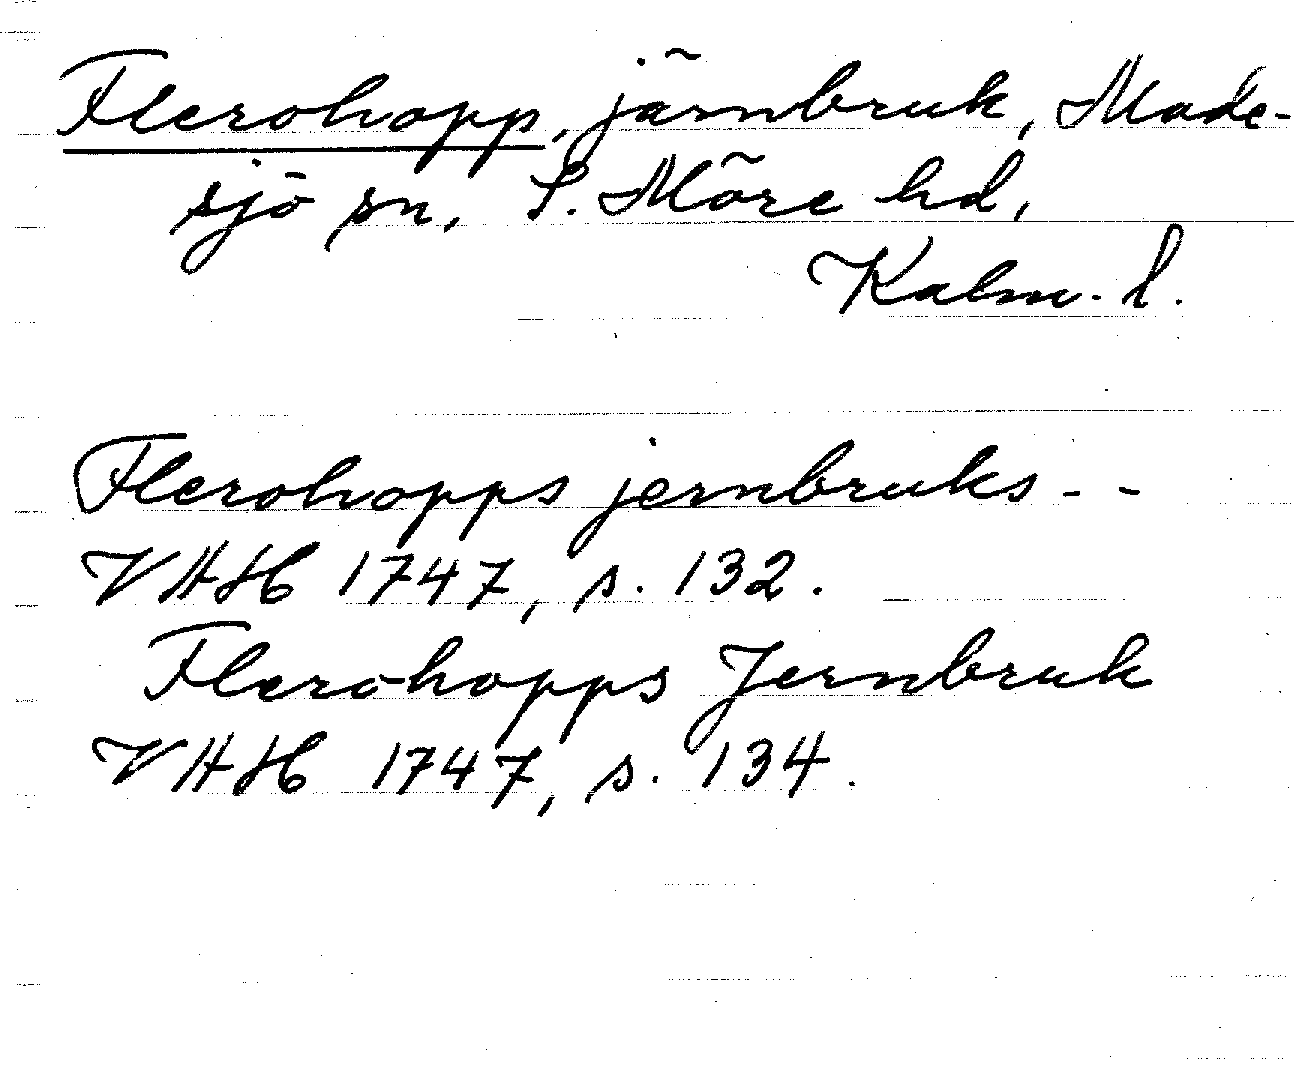 Flerohopp, järnbruk, Made-
sjö sn, S. Möre hd,
Kalm. l.
Flerohopps jernbruks - -
VHAH 1747, s. 132.
Flerohopps Jernbruk
VHAH 1747, s. 134.